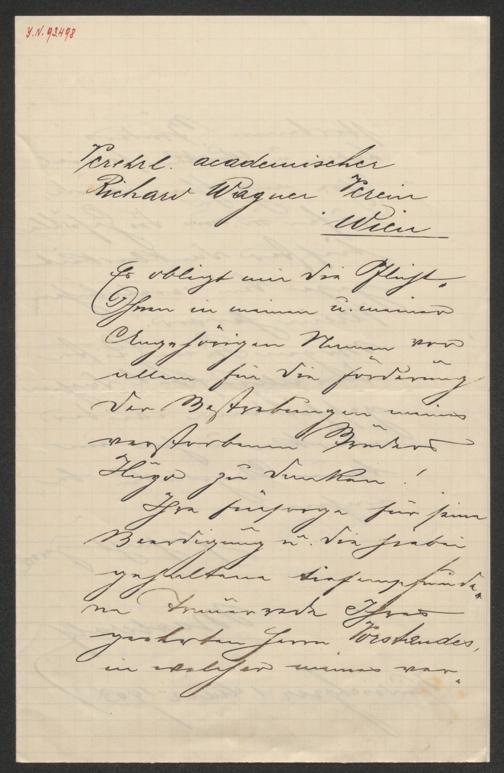 J. N. 93498
Verehrl. academischer
Richard Wagner Verein
Wien
Es obligt mir die Pflicht,
Ihnen in meinem u. meiner
Angehörigen Namen vor
allem für die förderung
der Bestrebungen meines
verstorbenen Bruders
Hugo zu danken!
Ihre fürsorge für seine
Beerdigung u. die hiebei
gehaltene tiefempfunde-
ne Trauerrede Ihres
geehrten Herrn Vorstandes,
in welcher meines ver-